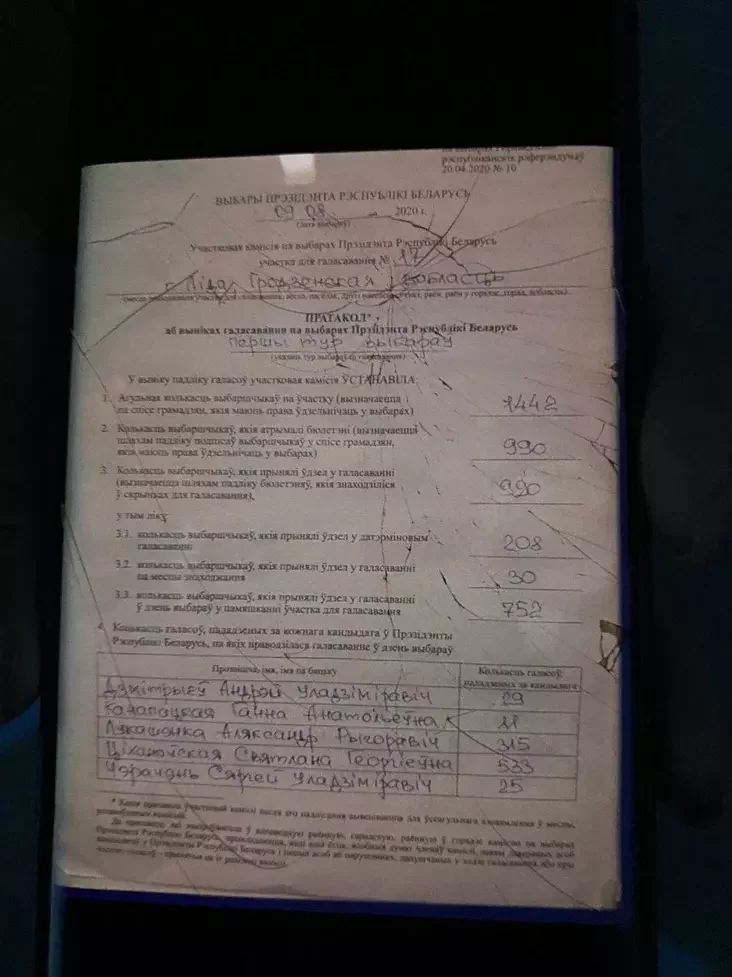 рэспубліканскіх рэферэндумаў
20.04.2020 № 10
ВЫБАРЫ ПРЭЗІДЭНТА РЭСПУБЛІКІ БЕЛАРУСЬ
09 08 2020 г.
(дата выбараў)
Участковая камісія па выбарах Прэзідэнта Рэспублікі Беларусь
участка для галасавання № 17
г. Ліда, Гродзенская вобласць
ПРАТАКОЛ*
аб выніках галасавання на выбарах Прэзідэнта Рэспублікі Беларусь
першы тур выбараў
У выніку падліку галасоў участковая камісія ЎСТАНАВІЛА:
1. Агульная колькасць выбаршчыкаў на ўчастку (вызначаецца
па спісе грамадзян, якія маюць права ўдзельнічаць у выбарах) 1442
2. Колькасць выбаршчыкаў, якія атрымалі бюлетэні (вызначаецца
шляхам падліку подпісаў выбаршчыкаў у спісе грамадзян,
якія маюць права ўдзельнічаць у выбарах) 990
3. Колькасць выбаршчыкаў, якія прынялі ўдзел у галасаванні
(вызначаецца шляхам падліку бюлетэняў, якія знаходзіліся
ў скрынках для галасавання), 990
у тым ліку:
3.1. колькасць выбаршчыкаў, якія прынялі ўдзел у датэрміновым
галасаванні 208
3.2. колькасць выбаршчыкаў, якія прынялі ўдзел у галасаванні
па месцы знаходжання 30
3.3. колькасць выбаршчыкаў, якія прынялі ўдзел у галасаванні
ў дзень выбараў у памяшканні ўчастка для галасавання 752
4. Колькасць галасоў, пададзеных за кожнага кандыдата ў Прэзідэнты
Рэспублікі Беларусь, па якіх праводзілася галасаванне ў дзень выбараў
Прозвішча, імя, імя па бацьку
Колькасць галасоў,
пададзеных за кандыдата
Дзмітрыеў Андрэй Уладзіміравіч 29
Канапацкая Ганна Анатольеўна 11
Лукашэнка Аляксандр Рыгоравіч 315
Ціханоўская Святлана Георгіеўна 533
Чэрачэнь Сяргей Уладзіміравіч 25